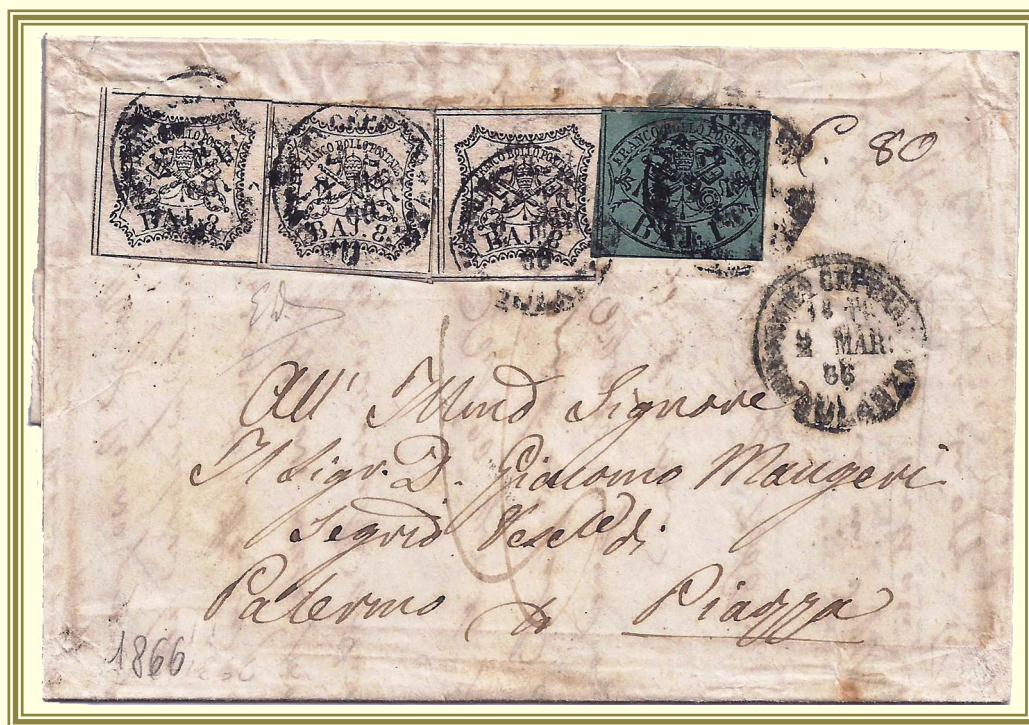 FRANCO BOLLO POSTALE
BAJ. 8
FRANCO BOLLO POSTALE
BAJ. 8
FRANCO BOLLO POSTALE
BAJ. 8
FRANCO BOLLO POSTALE
BAJ. 1
80
MAR.
66
All' Illmo Signore
Il Sigr. D. Giacomo Maugeri
Segrio di
Palermo Piazza
1866